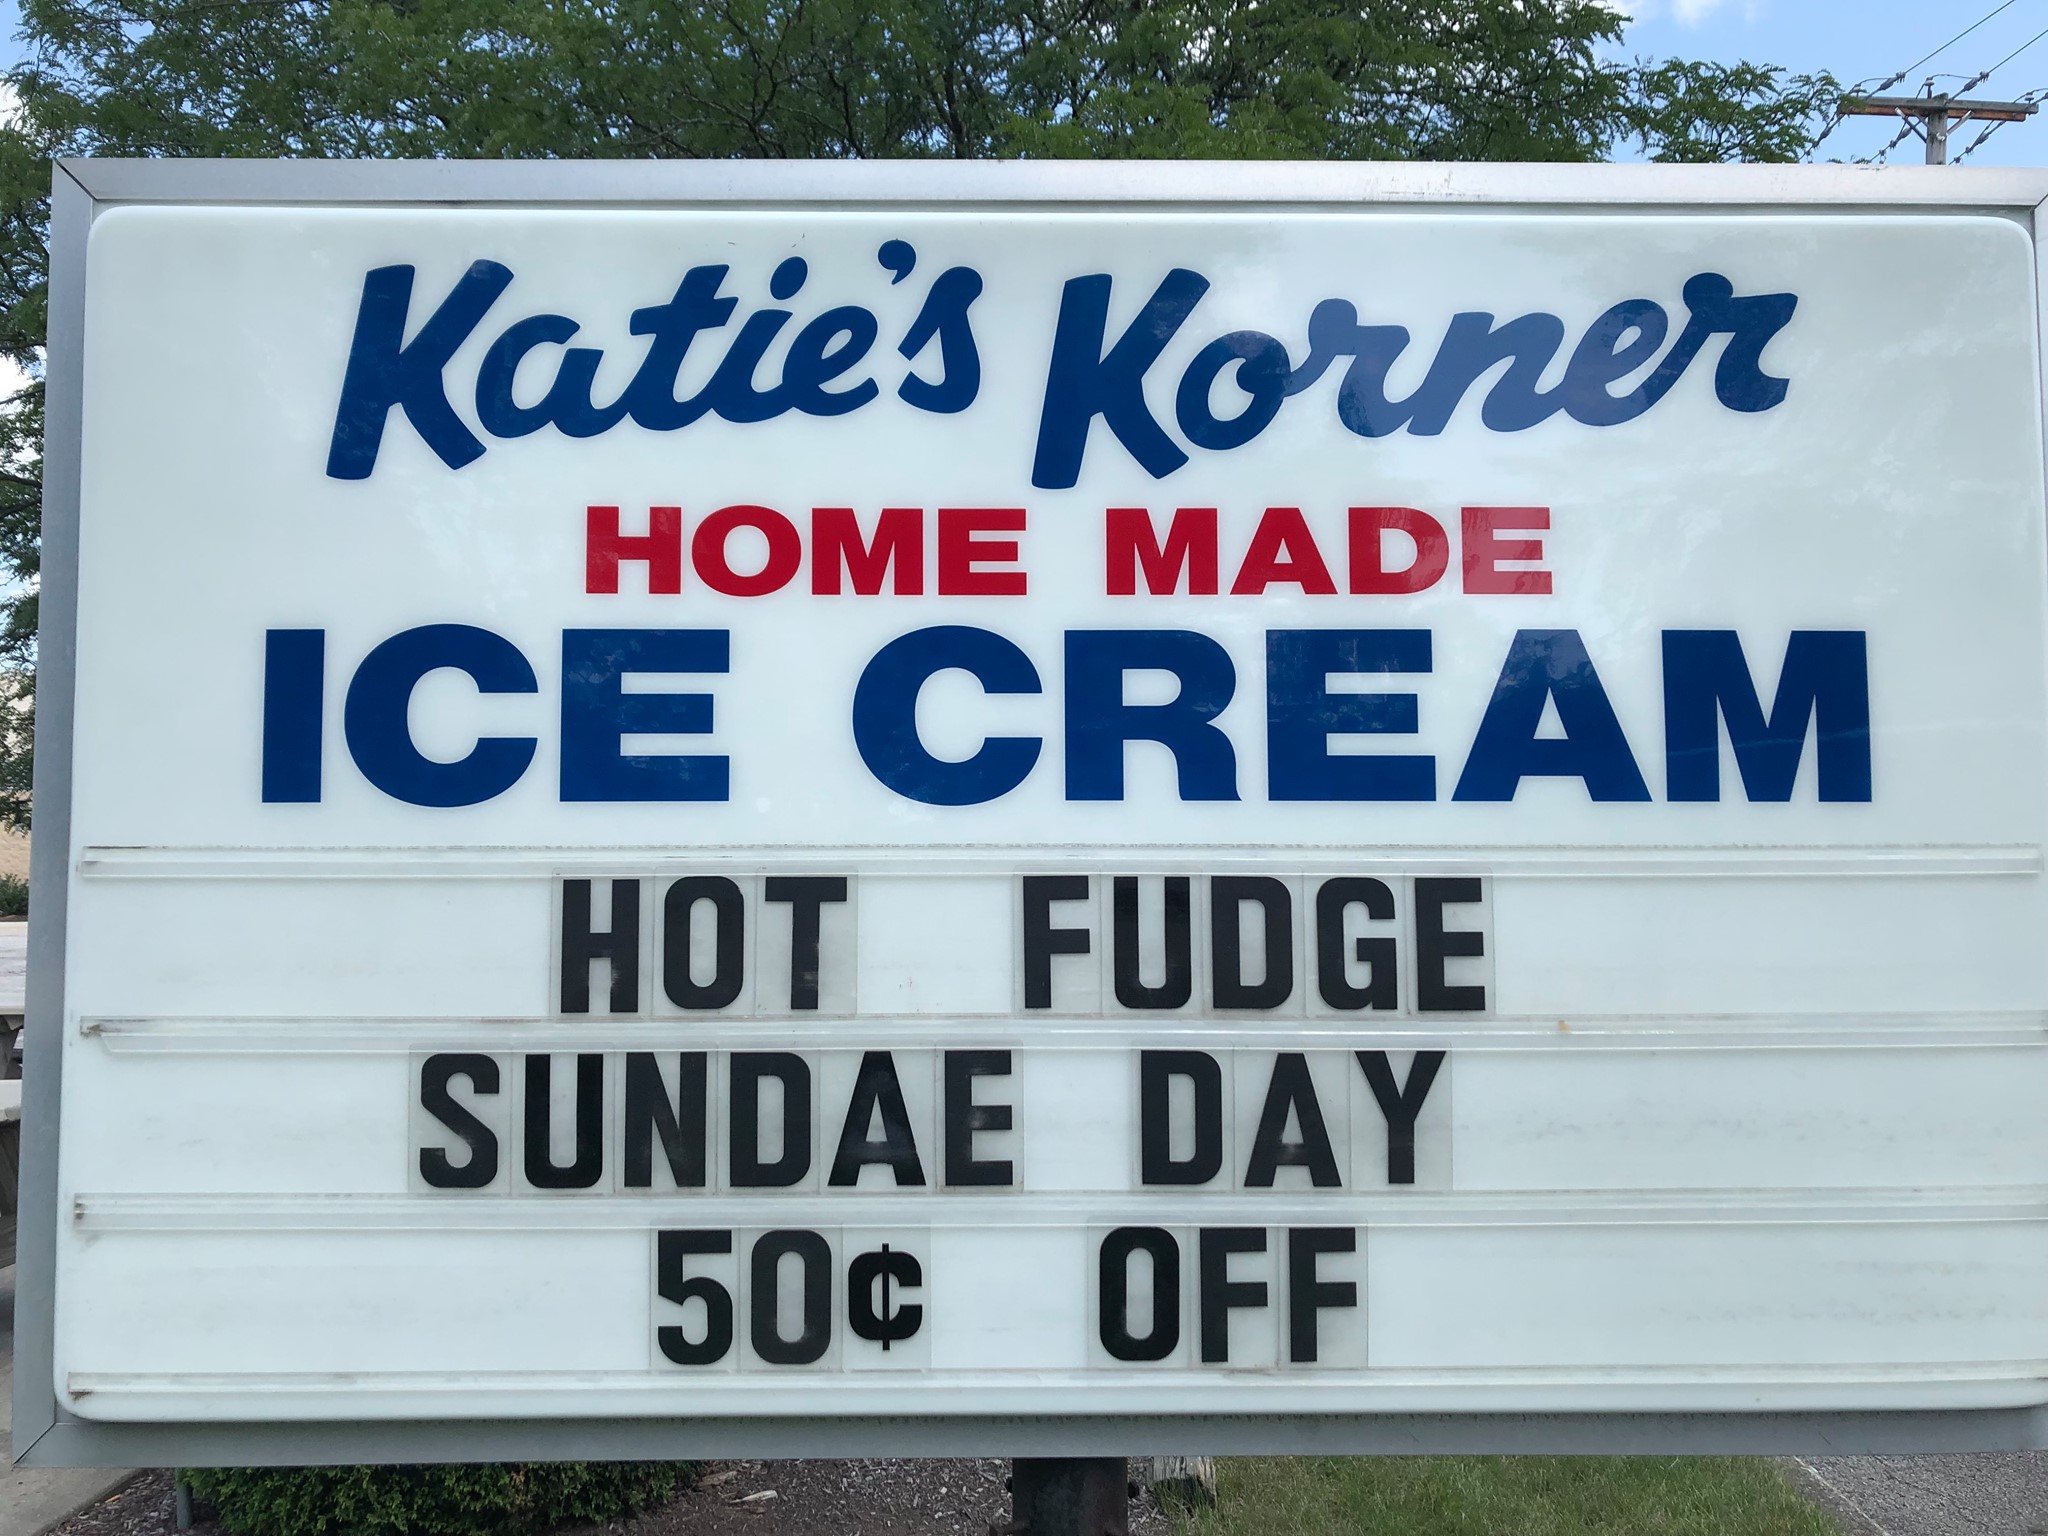 Katie's Korner
HOME MADE
ICE CREAM
HOT FUDGE
SUNDAE DAY
50¢ OFF